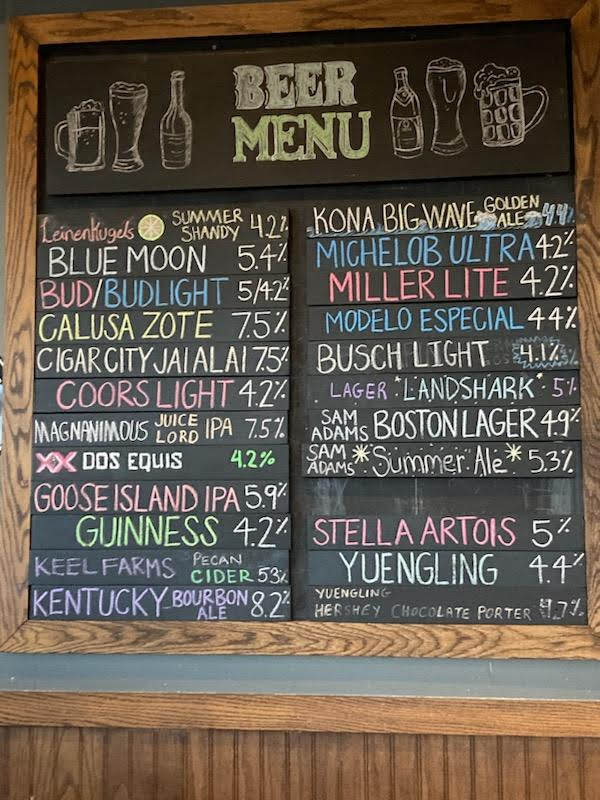 BEER
MENU
Leinenkugels SUMMER SHANDY 4.2%
BLUE MOON 5.4%
BUD/BUDLIGHT 5/4.2%
CALUSA ZOTE 7.5%
CIGAR CITY JAI ALAI 7.5%
COORS LIGHT 4.2%
MAGNANIMOUS JUICE LORD IPA 7.5%
XX DOS EQUIS 4.2%
GOOSE ISLAND IPA 5.9%
GUINNESS 4.2%
KEEL FARMS PECAN CIDER 5.3%
KENTUCKY BOURBON ALE 8.2%
KONA BIG WAVE GOLDEN ALE 4.4%
MICHELOB ULTRA 4.2%
MILLER LITE 4.2%
MODELO ESPECIAL 4.4%
BUSCH LIGHT 4.1%
LAGER *LANDSHARK* 5%
SAM ADAMS BOSTON LAGER 4.9%
SAM ADAMS *Summer Ale* 5.3%
STELLA ARTOIS 5%
YUENGLING 4.4%
YUENGLING
HERSHEY CHOCOLATE PORTER 4.7%